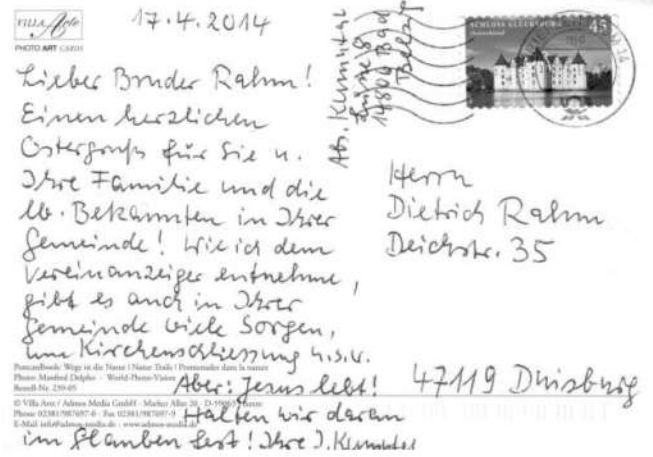 VILLA Arte
PHOTO ART CARDS
17.4.2014
Lieber Bruder Rahm!
Einen herzlichen
Ostergruß für Sie u.
Ihre Familie und die
lb. Bekannten in Ihrer
Gemeinde! Wie ich dem
Vereinanzeiger entnehme,
gibt es auch in Ihrer
Gemeinde viele Sorgen,
um Kirchenschliessung u.s.w.
Aber: Jesus lebt!
Halten wir daran
im Glauben fest! Ihre J.
Postcardbook: Wege in die Natur | Nature Trails | Promenades dans la nature
Photo: Manfred Delpho - World-Photo-Vision
Bestell-Nr. 239-05
© Villa Arte / Admos Media GmbH - Marker Allee
Phone 02381/987697-0 - Fax 02381/987697-9
E-Mail info@admos-media.de - www.admos-media.de
Abs.
14806 Bad
Belzig
SCHLOSS GLÜCKSBURG
Deutschland
45
Herrn
Dietrich Rahm
Deichstr. 35
47119 Duisburg